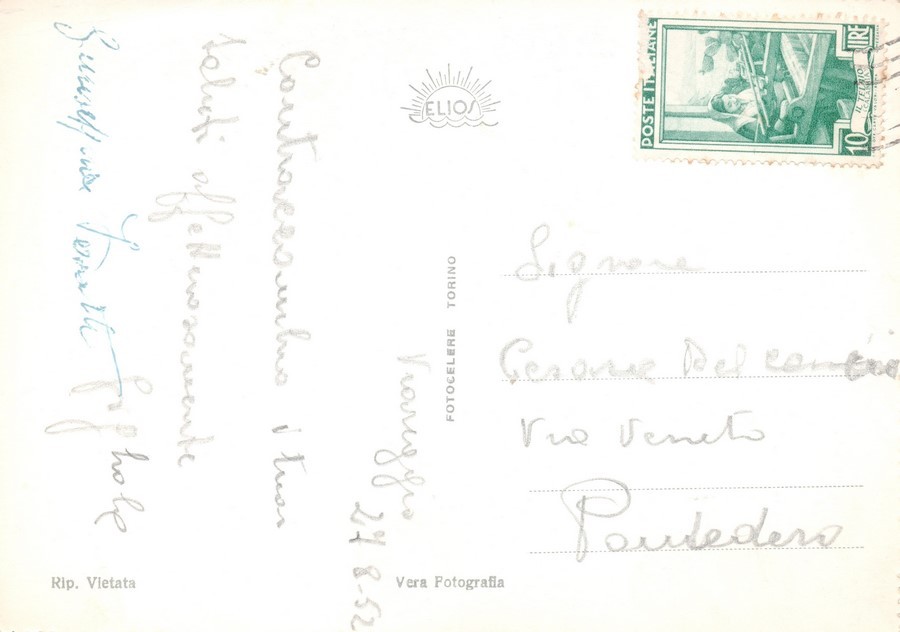 Viareggio
27 8-52
Contraccambio i tuoi
saluti affettuosamente
Giuseppina
ELIOS
FOTOCELERE TORINO
POSTE ITALIANE
LIRE
10
IL TELAIO
Signore
Cesare Del
Via Veneto
Pontedera
Rip. Vietata
Vera Fotografia